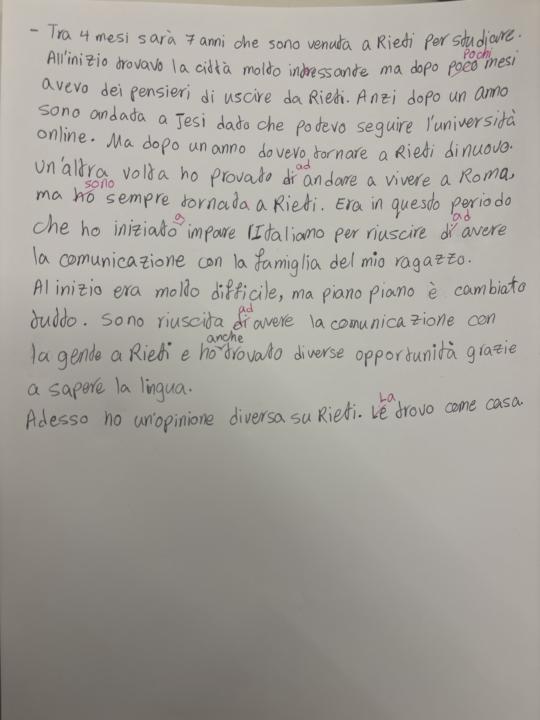 - Tra 4 mesi sarà 7 anni che sono venuta a Rieti per studiare.
Pochi
All'inizio trovavo la città molto interessante ma dopo poco mesi
avevo dei pensieri di uscire da Rieti. Anzi dopo un anno
sono andata a Jesi dato che potevo seguire l'università
online. Ma dopo un anno dovevo tornare a Rieti di nuovo.
ad
Un'altra volta ho provato di andare a vivere a Roma,
sono
ma ho sempre tornata a Rieti. Era in questo periodo
a ad
che ho iniziato impare l'Italiamo per riuscire di avere
la comunicazione con la famiglia del mio ragazzo.
Al inizio era molto difficile, ma piano piano è cambiato
ad
tutto. Sono riuscita di avere la comunicazione con
anche
la gente a Rieti e ho trovato diverse opportunità grazie
a sapere la lingua.
La
Adesso ho un'opinione diversa su Rieti. Lé trovo come casa